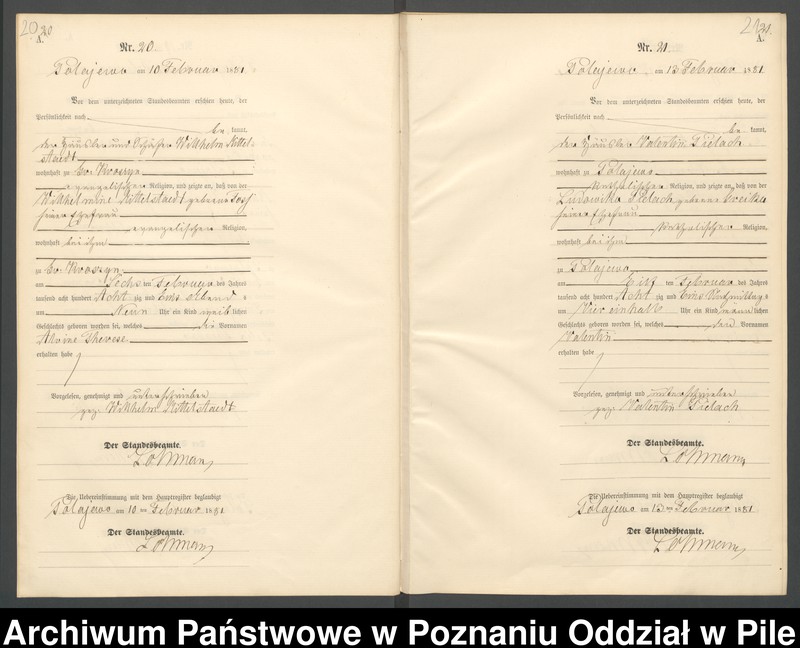 20 20
A.
Nr. 20
Polajewo am 10 Februar 1881
Vor dem unterzeichneten Standesbeamten erschien heute, der
Persönlichkeit nach
be kannt,
der Häusler und Schäfer Wilhelm Mittel
staedt
wohnhaft zu Ev. Krosyn
evangelischer Religion, und zeigte an, daß von der
Wilhelmine Mittelstaedt geborene
seiner Ehefrau
evangelischer Religion,
wohnhaft bei ihm
zu Ev. Krosyn
am Sechs ten Februar des Jahres
tausend acht hundert Acht zig und Eins Abend s
um Neun Uhr ein Kind weib lichen
Geschlechts geboren worden sei, welches die Vornamen
Alwine Therese
erhalten habe
Vorgelesen, genehmigt und unterschrieben
gez. Wilhelm Mittelstaedt
Der Standesbeamte.
Lohmann
Die Uebereinstimmung mit dem Hauptregister beglaubigt
Polajewo am 10 ten Februar 1881
Der Standesbeamte.
Lohmann
21 21.
A.
Nr. 21
Polajewo am 13 Februar 1881
Vor dem unterzeichneten Standesbeamten erschien heute, der
Persönlichkeit nach
be kannt,
der Häusler Valentin Pielach
wohnhaft zu Polajewo
katholischer Religion, und zeigte an, daß von der
Ludowika Pielach geborene
seiner Ehefrau
katholischer Religion,
wohnhaft bei ihm
zu Polajewo
am Elf ten Februar des Jahres
tausend acht hundert Acht zig und Eins Nachmittag s
um Vier einhalb Uhr ein Kind männ lichen
Geschlechts geboren worden sei, welches den Vornamen
Valentin
erhalten habe
Vorgelesen, genehmigt und unterschrieben
gez. Valentin Pielach
Der Standesbeamte.
Lohmann
Die Uebereinstimmung mit dem Hauptregister beglaubigt
Polajewo am 13 ten Februar 1881
Der Standesbeamte.
Lohmann
Archiwum Państwowe w Poznaniu Oddział w Pile